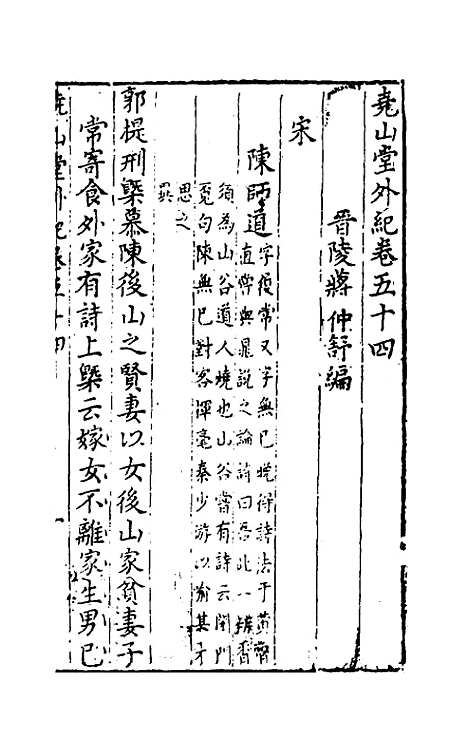 堯山堂外紀卷五十四
晉陵蔣仲舒編
宋
陳師道字履常又字無己晚得詩法于黃
直嘗與晁說之論詩曰吾此一瓣香
須為山谷道人燒也山谷嘗有詩云閉門
覓句陳無己對客揮毫秦少游以俞其才
思之
異
郭概刑槩慕陳後山之賢妻以女後山家貧妻子
常寄食外家有詩上槩云嫁女不離家生男已
堯山堂外紀卷五十四 一